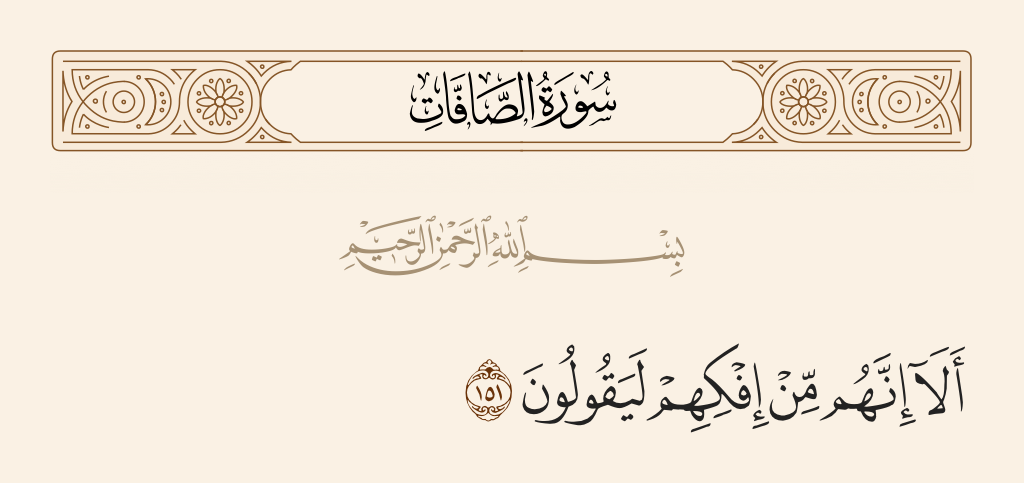 سُورَةُ الصَّافَّاتِ
بِسْمِ ٱللَّهِ ٱلرَّحْمَٰنِ ٱلرَّحِيمِ
أَلَآ إِنَّهُم مِّنْ إِفْكِهِمْ لَيَقُولُونَ ١٥١